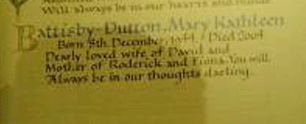 Will always be in our hearts and
Battisby-Dutton, Mary Kathleen
Born 8th. December, 1944 / Died 2001
Dearly loved wife of David and
Mother of Roderick and Fiona. You will
Always be in our thoughts darling.